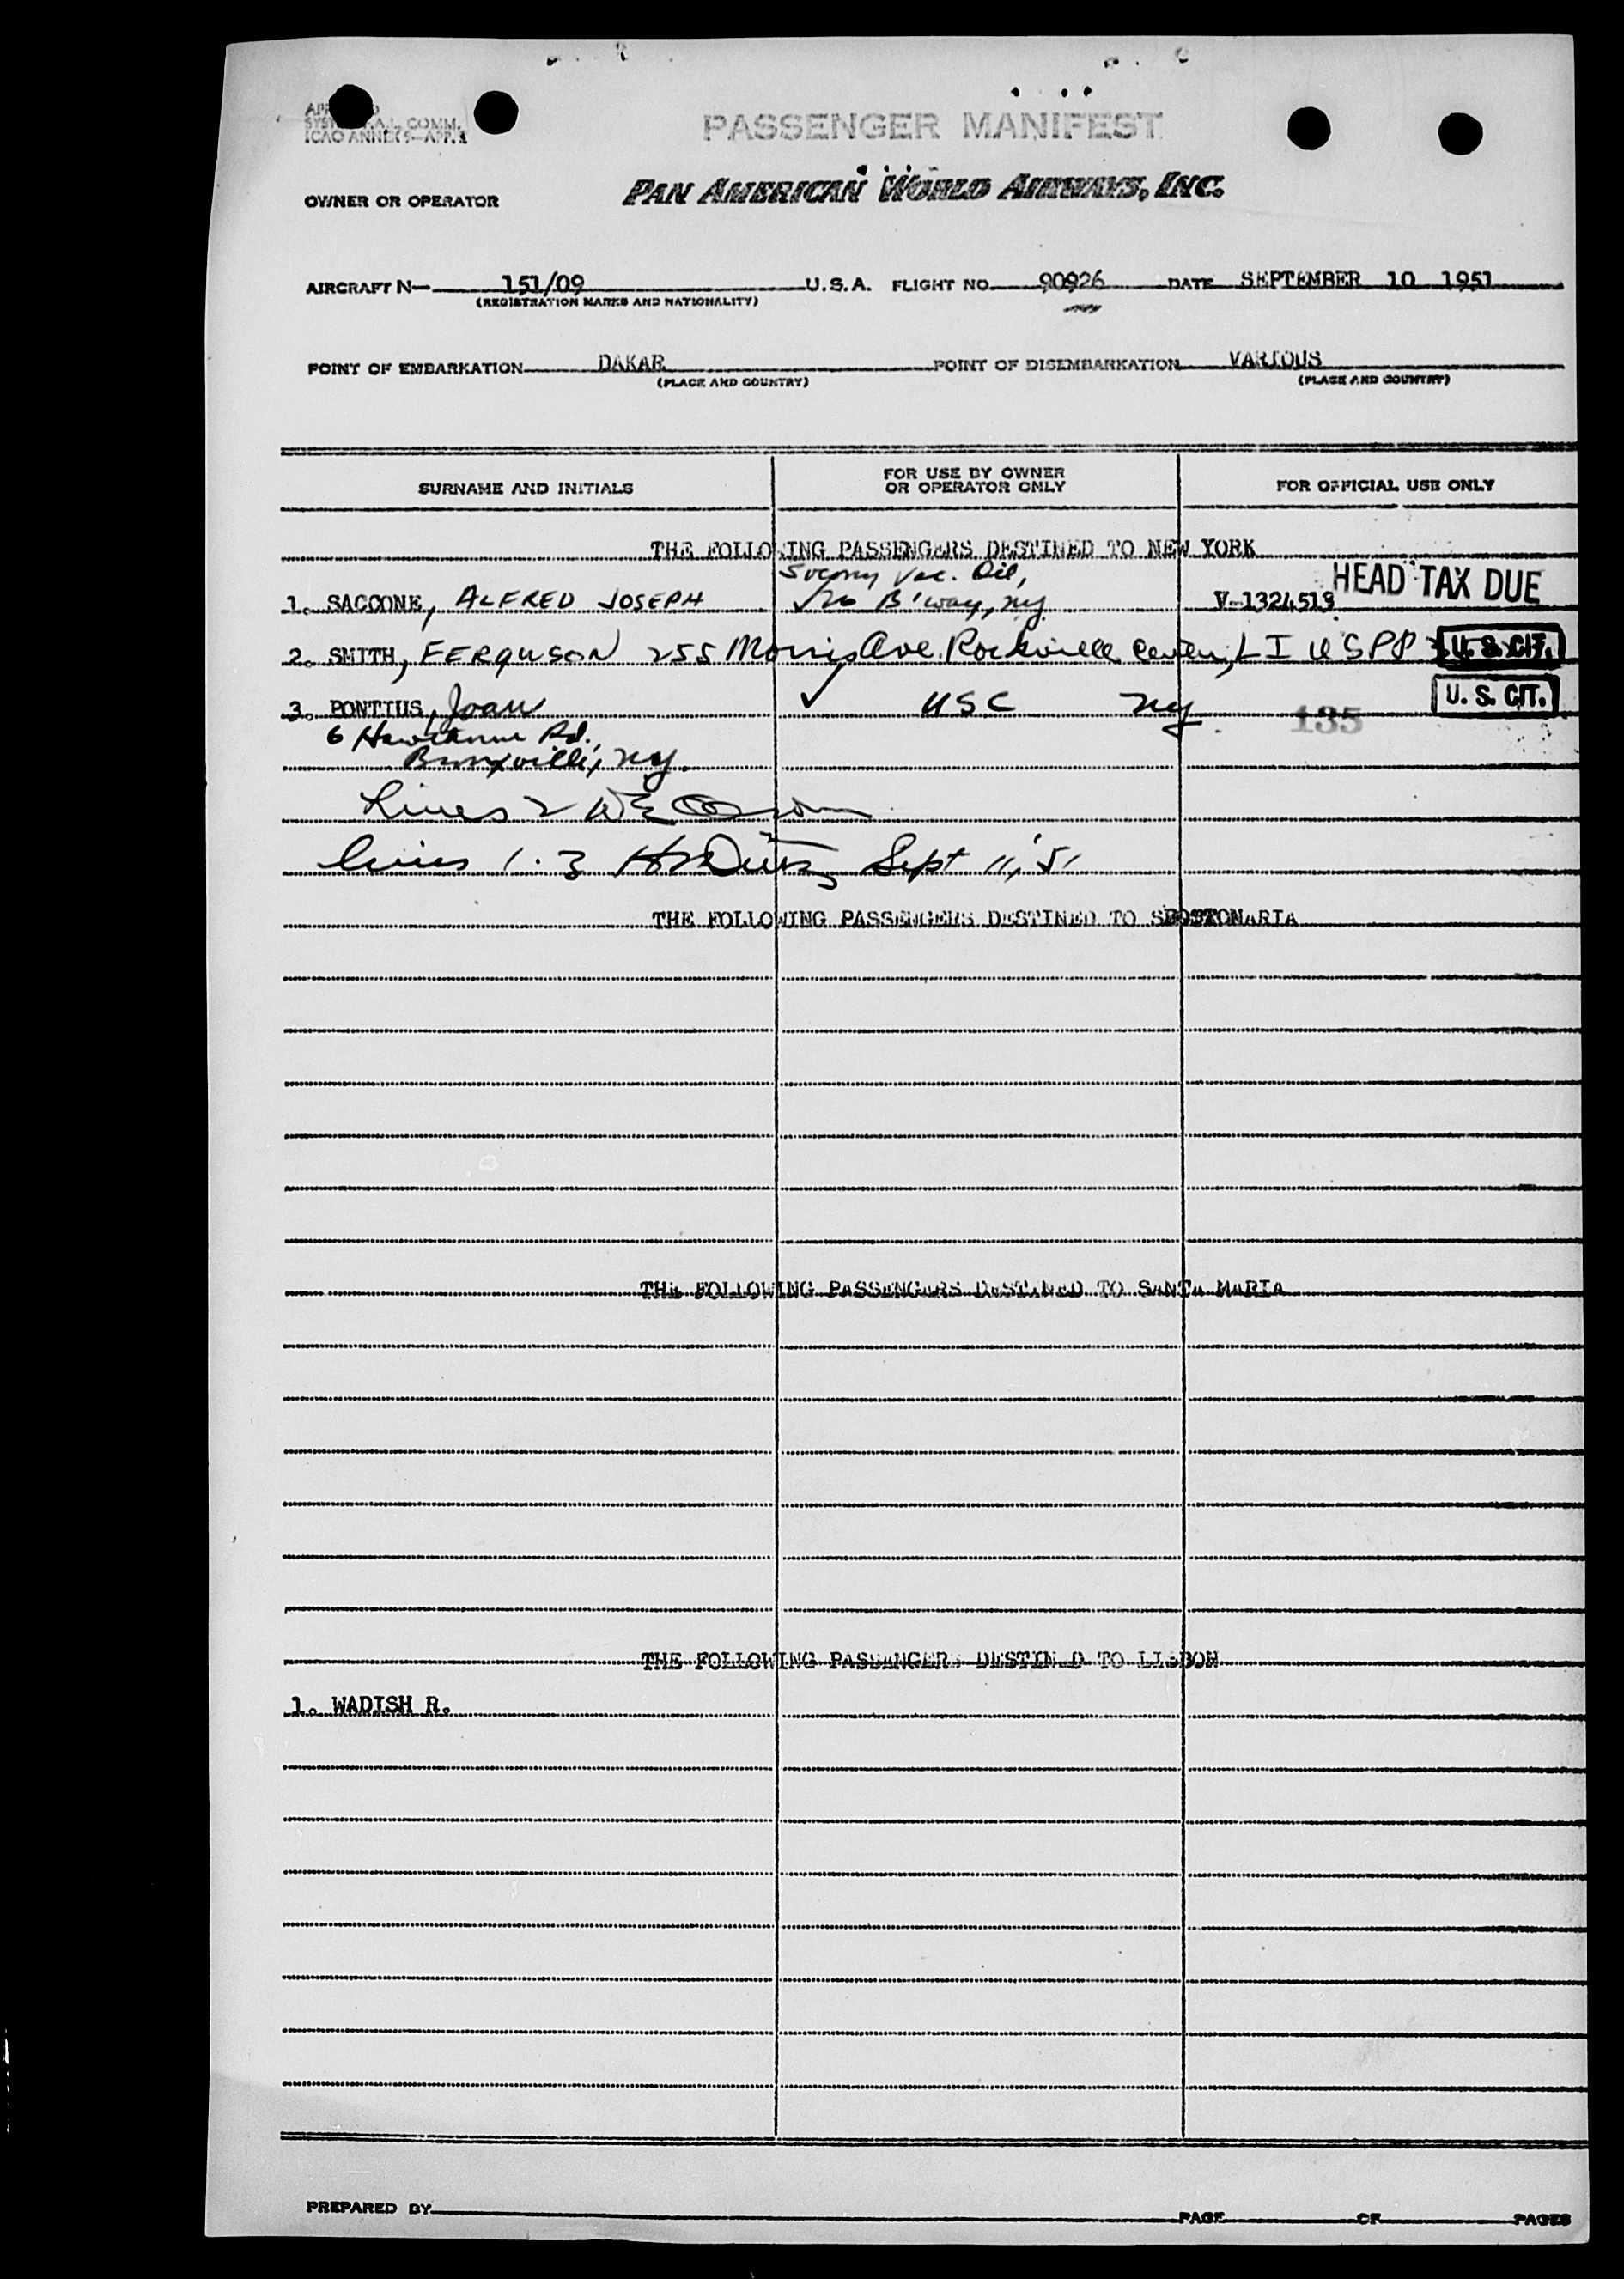 PASSENGER MANIFEST
COMM.
OWNER OR OPERATOR PAN AMERICAN WORLD AIRWAYS, INC.
AIRCRAFT N— 151/09 U.S.A. FLIGHT NO. 90926 DATE SEPTEMBER 10 1951
(REGISTRATION MARKS AND NATIONALITY)
POINT OF EMBARKATION DAKAR POINT OF DISEMBARKATION VARIOUS
(PLACE AND COUNTRY) (PLACE AND COUNTRY)
SURNAME AND INITIALS FOR USE BY OWNER OR OPERATOR ONLY FOR OFFICIAL USE ONLY
THE FOLLOWING PASSENGERS DESTINED TO NEW YORK
Socony Vac. Oil, HEAD TAX DUE
1. SACCONE, ALFRED JOSEPH 26 B'way, NY V-1324519
2. SMITH, FERGUSON 255 Morris Ave. Rockville Center, L I U S PP U. S. CIT.
3. PONTIUS, Joan ✓ USC NY 135 U. S. CIT.
6 Hawthorne Rd.,
Bronxville, NY.
Lines 2
Lines 1. 3 Sept 11, '51
THE FOLLOWING PASSENGERS DESTINED TO BOSTON
THE FOLLOWING PASSENGERS DESTINED TO SANTA MARIA
THE FOLLOWING PASSENGERS DESTINED TO LISBON
1. WADISH R.
PREPARED BY PAGE OF PAGES